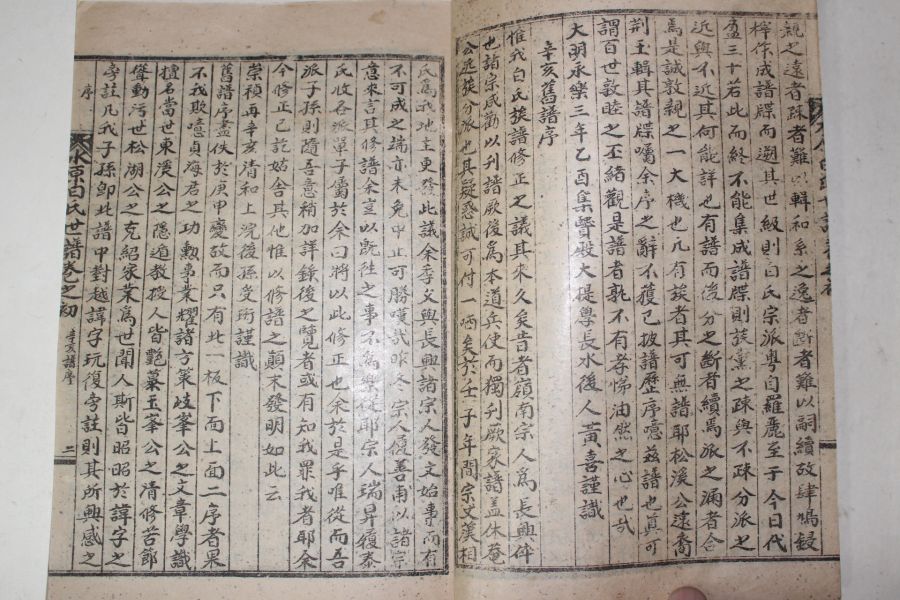 親之遠者疎者難以輯和系之逸者斷者難以嗣續故肆鳩鋟
梓作成譜牒而遡其世級則白氏宗派粤自羅麗至于今日代
盈三十若此而終不能集成譜牒則族黨之疎與不疎分派之
近與不近其何能詳也有譜而後分之斷者續焉派之漏者合
焉是誠敦親之一大機也凡有族者其可無譜耶松溪公遠裔
荆玉輯其譜牒囑余序之辭不獲已披譜歷序噫玆譜也眞可
謂百世敦睦之丕緖觀是譜者孰不有孝悌油然之心也哉
大明永樂三年乙酉集賢殿大提學長水後人黃喜謹識
辛亥舊譜序
惟我白氏族譜修正之議其來久矣昔者嶺南宗人爲長興倅
也諸宗咸勸以刊譜厥後爲本道兵使而獨刊厥家譜盖休菴
公派族分派也其疑惑誠可付一哂矣於壬子年間宗丈漢相
氏爲我地主更發此議余季父與長興諸宗人發文始事而有
不可成之端亦未免中止可勝嘆哉昨冬宗人復善甫以諸宗
意來言其修譜余豈以旣往之事不爲樂從耶宗人瑞昇復泰
氏收各派單子屬於余曰將以此修正也余於是乎唯從而吾
派子孫則隨吾意稍加詳錄後之覽者或有知我罪我者耶余
今修正已訖姑舍其他惟以修譜之顚末發明如此云
崇禎再辛亥淸和上浣後孫受珩謹識
舊譜序盡佚於庚甲變故而只有此一板下面上面二序者果
不我欺噫貞海君之功勳事業耀諸方策岐峯公之文章學識
擅名當世東溪公之隱道敎授人皆艶慕玉峯公之淸修苦節
聳動汚世松湖公之克紹家業爲世聞人斯皆昭昭於諱字之
旁註凡我子孫卽此譜中對越諱字玩復旁註則其所興感之
序
水原白氏世譜卷之初
辛亥譜序
二